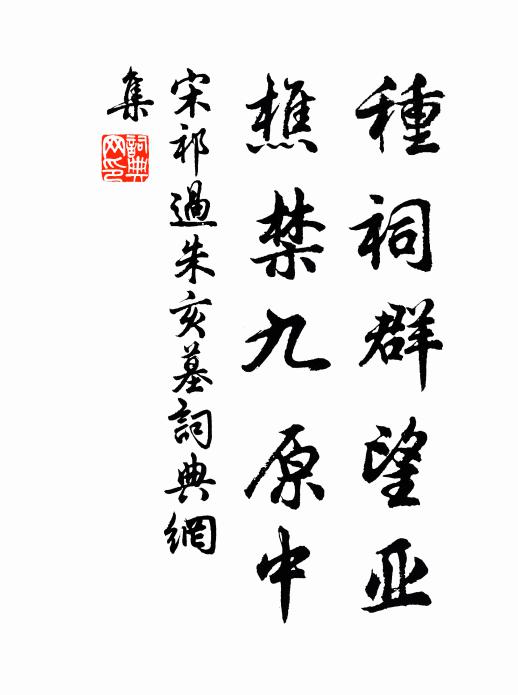 種祠群望亚
樵禁九原中
宋祁過朱亥墓詞典網
集
詞典
网印